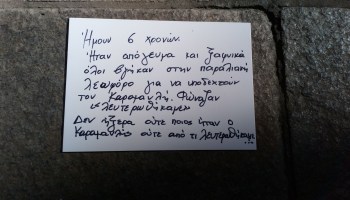 Ήμουν 6 χρονών.
Ήταν απόγευμα και ξαφνικά
όλοι βγήκαν στην παραλιακή
λεωφόρο για να υποδεχτούν
τον Καραμανλή. Φώναζαν
"λευτερωθήκαμε"
Δεν ήξερα ούτε ποιος ήταν ο
Καραμανλής ούτε από τι λευτερωθήκαμε...